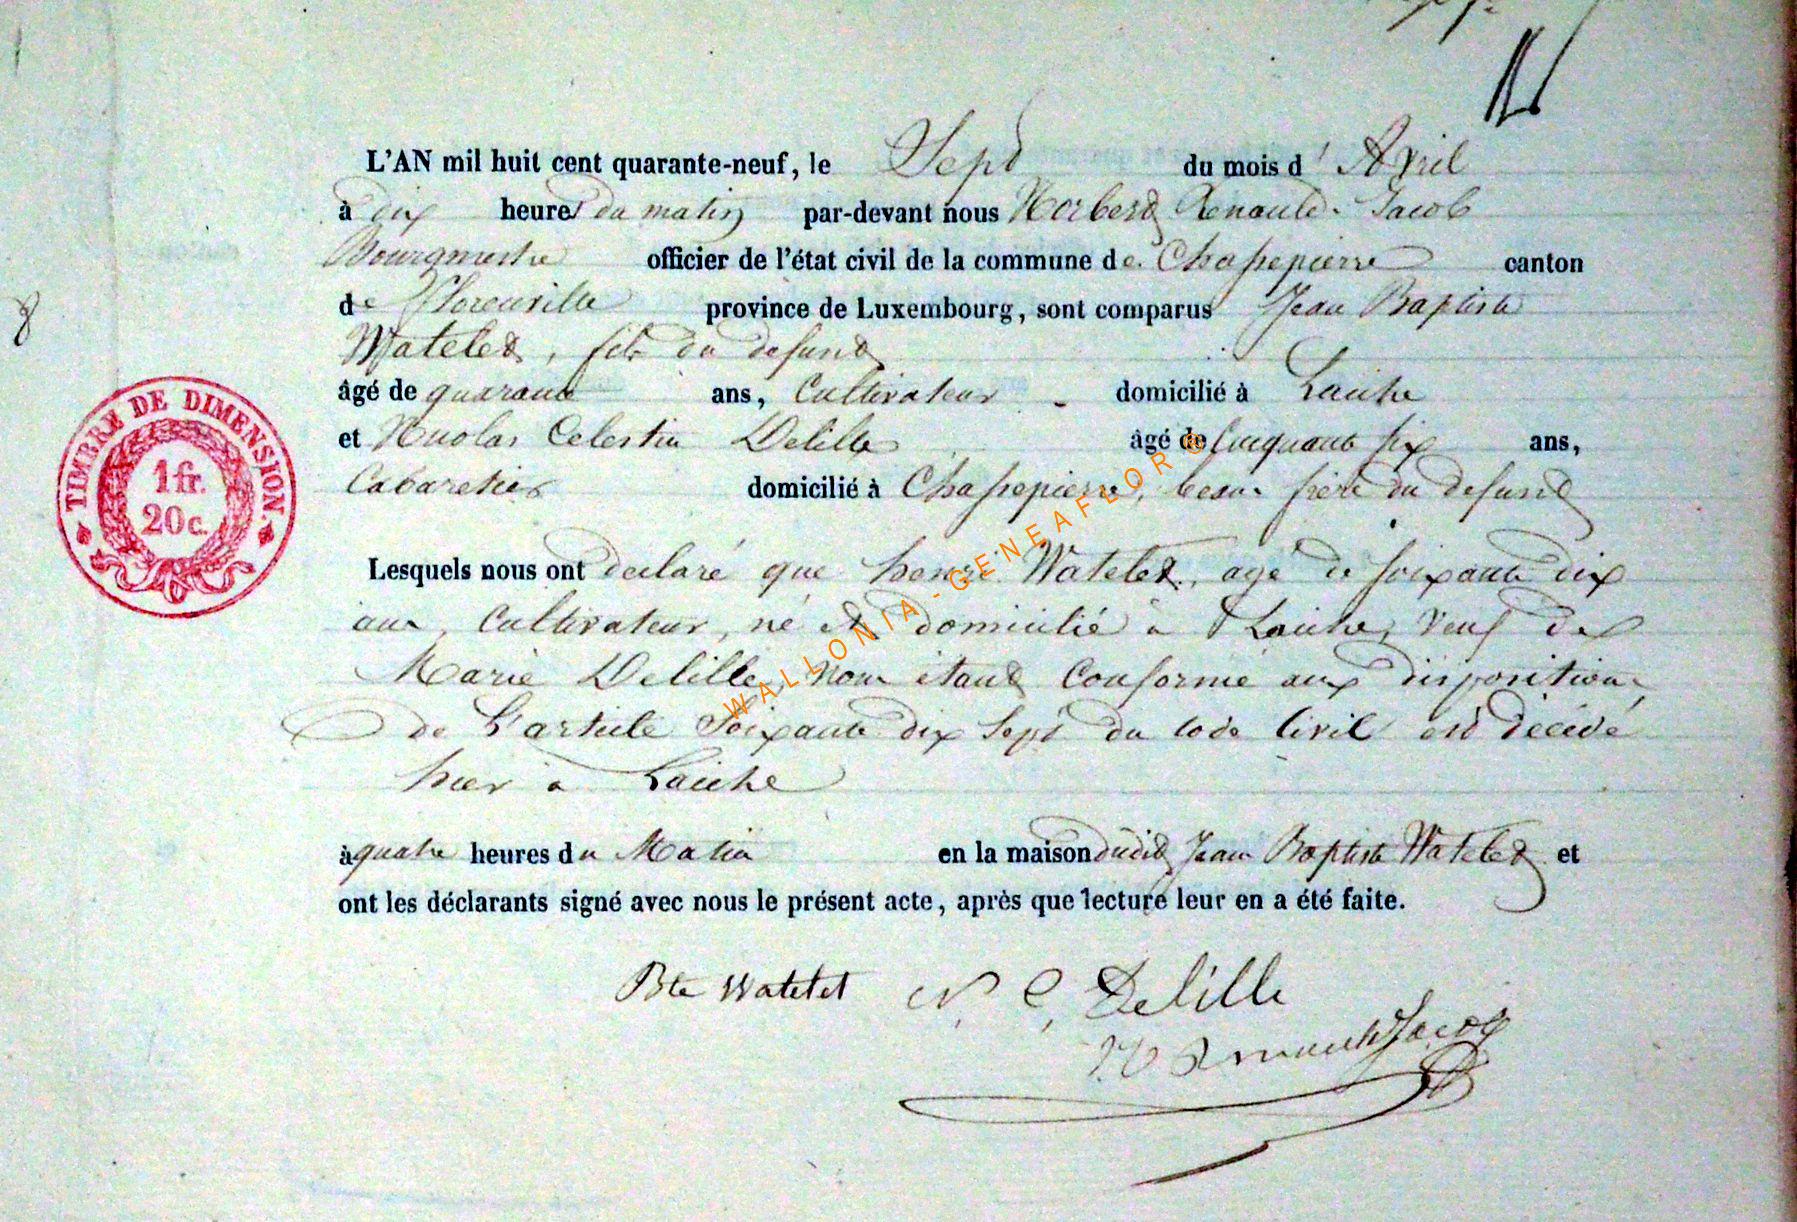 L'AN mil huit cent quarante-neuf, le Sept du mois d'Avril
à dix heures du matin par-devant nous Norbert Renauld. Jacob
Bourgmestre officier de l'état civil de la commune de Chassepierre canton
de Florenville province de Luxembourg, sont comparus Jean Baptiste
Watelet, fils du defunt
âgé de quarante ans, Cultivateur domicilié à Laiche
et Nicolas Celestin Delille âgé de Cinquante six ans,
Cabaretier domicilié à Chassepierre, beau frère du defunt
Lesquels nous ont declaré que henri Watelet, agé de soixante dix
ans, Cultivateur, né et domicilié à Laiche, veuf de
Marie Delille, nous étant Conformé aux dispositions
de L'article Soixante dix Sept du code Civil est décédé
hier à Laiche
à quatre heures du Matin en la maison dudit Jean Baptiste Watelet et
ont les déclarants signé avec nous le présent acte, après que lecture leur en a été faite.
Bte Watelet N. C. Delille
Jacob
TIMBRE DE DIMENSION.
1 fr.
20 c.
WALLONIA - GENEAFLOR ©